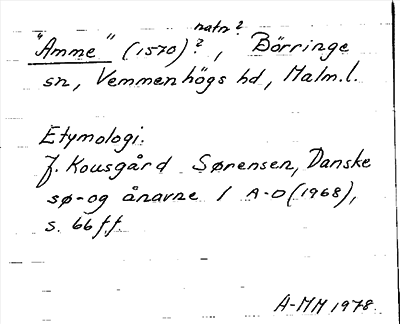 natn?
"Amme" (1570)?, Börringe
sn, Vemmenhögs hd, Malm.l.
Etymologi:
J. Kousgård Sørensen, Danske
sø- og ånavne 1 A-D (1968),
s. 66ff.
A-MM 1978.